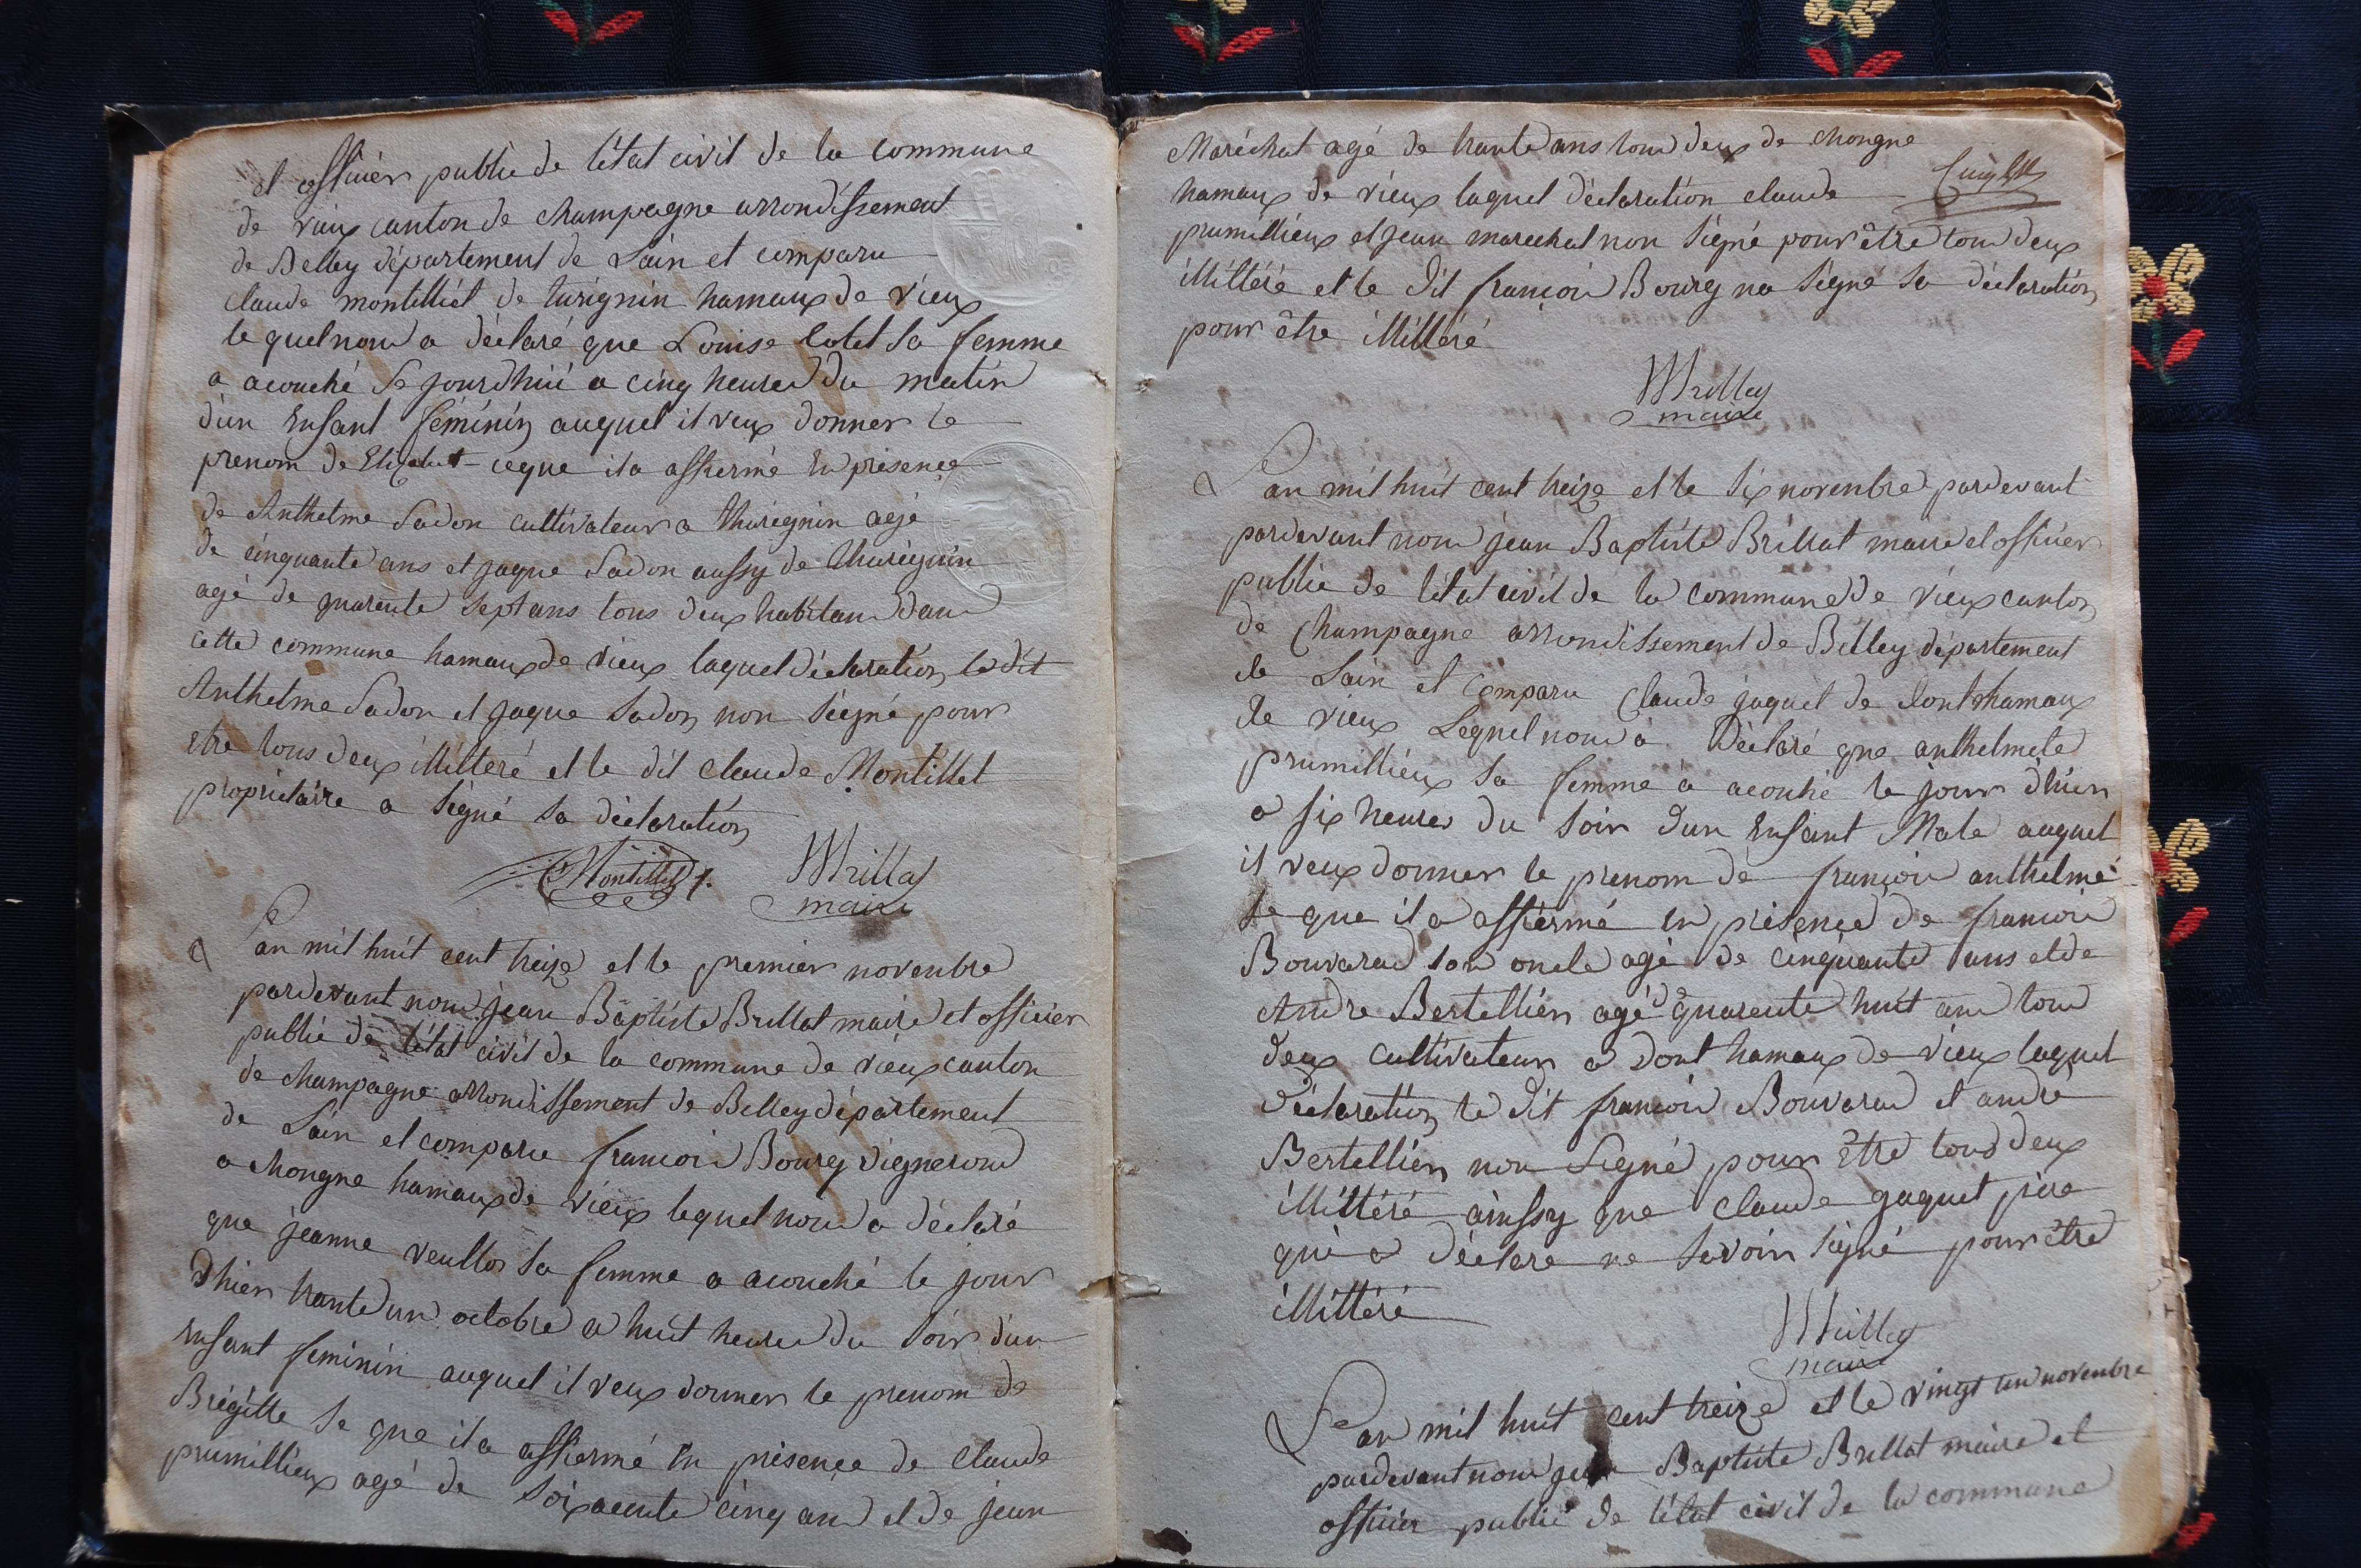 et offiuier publie de l'état civil de la commune
de vieux canton de champagne arrondissement
de Belley département de Lain et comparu
claude montilliet de turignin hamaux de vieux
le quel nous a déclaré que Louise Colet sa femme
a acouché se jourdhui a cinq heures du matin
d'un Enfant féminin auquel il veux donner le
prenom de ceque il a affiermé En présence
de Anthelme Sadon cultivateur a thurignin agé
de cinquante ans et jaque Sadon aussy de thurignin
agé de quarente sept ans tous deux habitans dans
cette commune hamaux de vieux laquel déclaration le dit
Anthelme Sadon et jaque Sadon non Signé pour
etre tous deux illitteré et le dit claude Montillet
propriétaire a Signé sa déclaration
Montillet Brillat
maire
Lan mil huit cent treize et le premier novenbre
pardevant nous jean Baptiste Brillat maire et offiuier
publie de l'état civil de la commune de vieux canton
de champagne arrondissement de Belley département
de Lain et comparu francois Bourg vigneron
a chongne hamaux de vieux lequel nous a déclaré
que jeanne veullos sa femme a acouché le jour
dhier trante un octobre a huit heures du soir d'un
enfant feminin auquel il veux donner le prenom de
Briégitte se que il a affiermé En présence de claude
prumillieux agé de soixaente cinq ans et de jean
Maréchat agé de trante ans tous deux de chongne
hamaux de vieux laquel déclaration claude
prumillieux et jean marechat non Siegné pour être tous deux
illittéré et le dit françois Bourg na Siegné sa déclaration
pour être illittéré
Brillat
maire
Lan mil huit cent treize et le six novenbre pardevant
pardevant nous jean Baptiste Brillat maire et offiuier
publie de l'état civil de la commune de vieux canton
de Champagne arrondissement de Belley département
de Lain et comparu Claude jaquet de dont hamaux
de vieux Lequel nous a Déclaré que anthelmete
prumillieux sa femme a acouché le jour dhier
a six heures du soir dun Enfant Male auquel
il veux donner le prenom de françois anthelme
se que il a affiermé en présence de francois
Bouvarad son oncle agé de cinquante ans et de
Andre Bertellier agé de quarente huit ans tous
deux cultivateur a dont hamaux de vieux laquel
déclaration le dit francois Bouvarad et andre
Bertellier non Signé pour Etre tous deux
illittéré ainssy que claude jaquet père
qui a déclare ne savoir signé pour être
illittéré
Brillat
maire
Lan mil huit cent treize et le vingt un novenbre
pardevant nous jean Baptiste Brillat maire et
offiuier publie de l'état civil de la commune